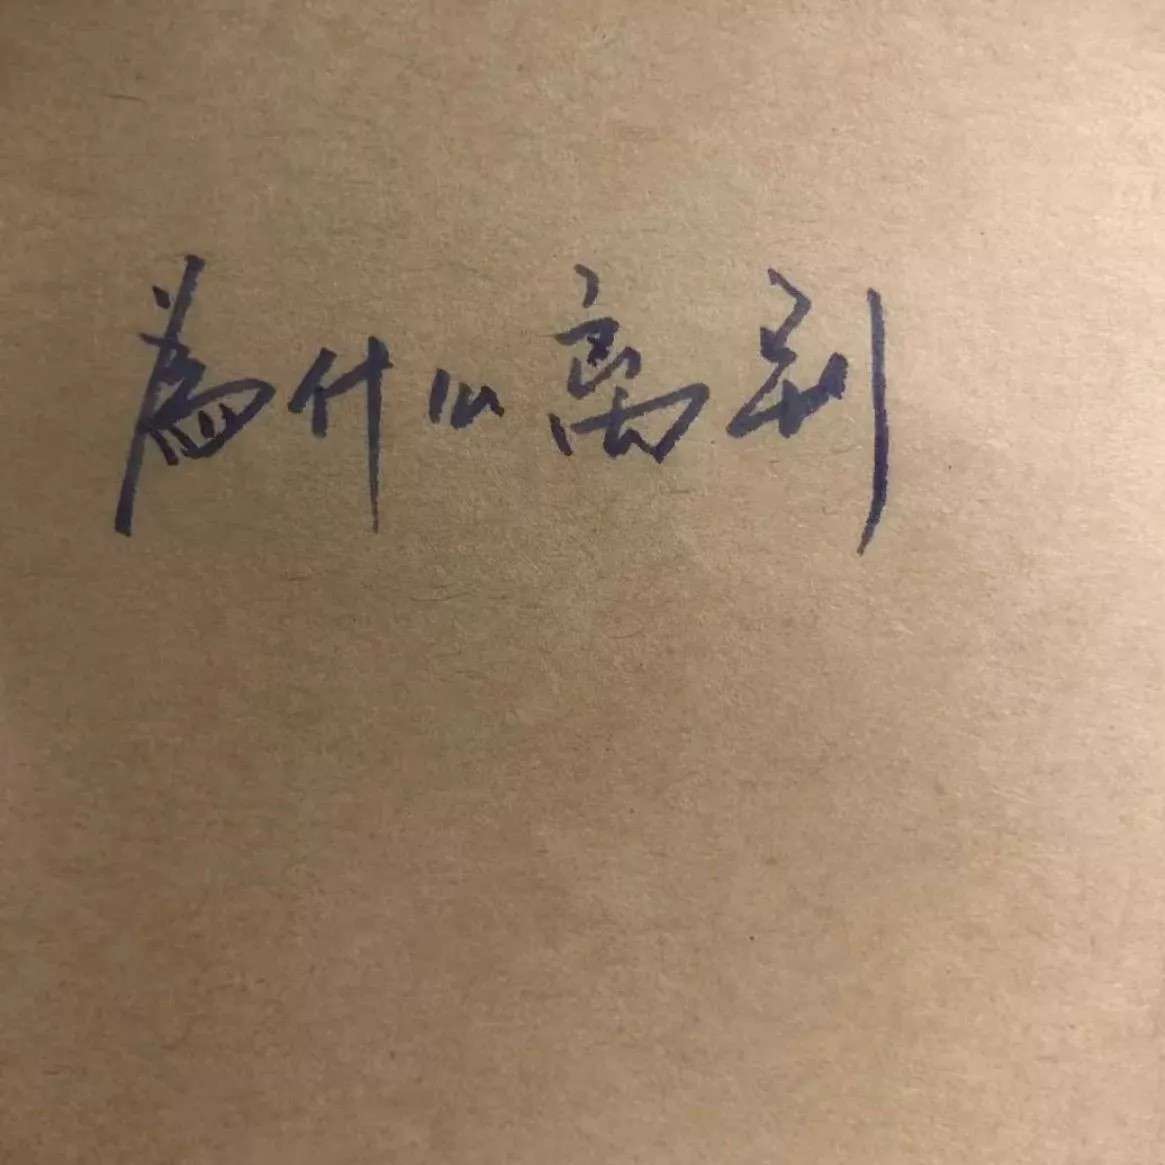 為什么离别